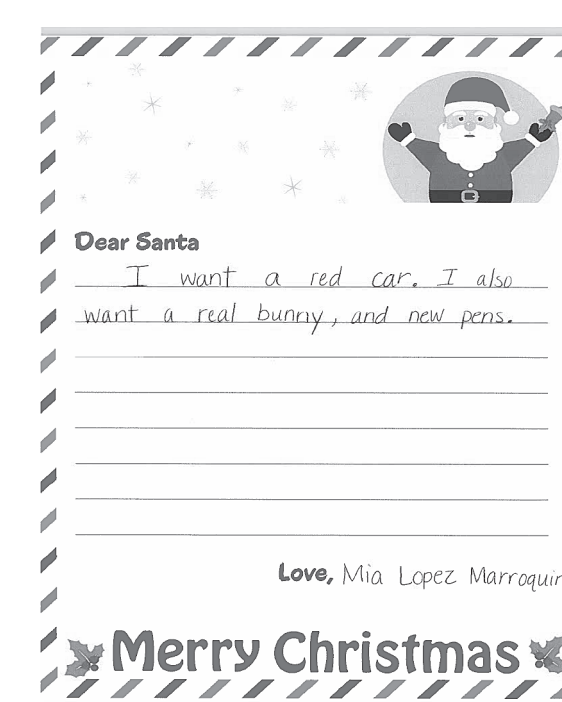 Dear Santa
I want a red car. I also
want a real bunny, and new pens.
Love, Mia Lopez Marroquin
Merry Christmas